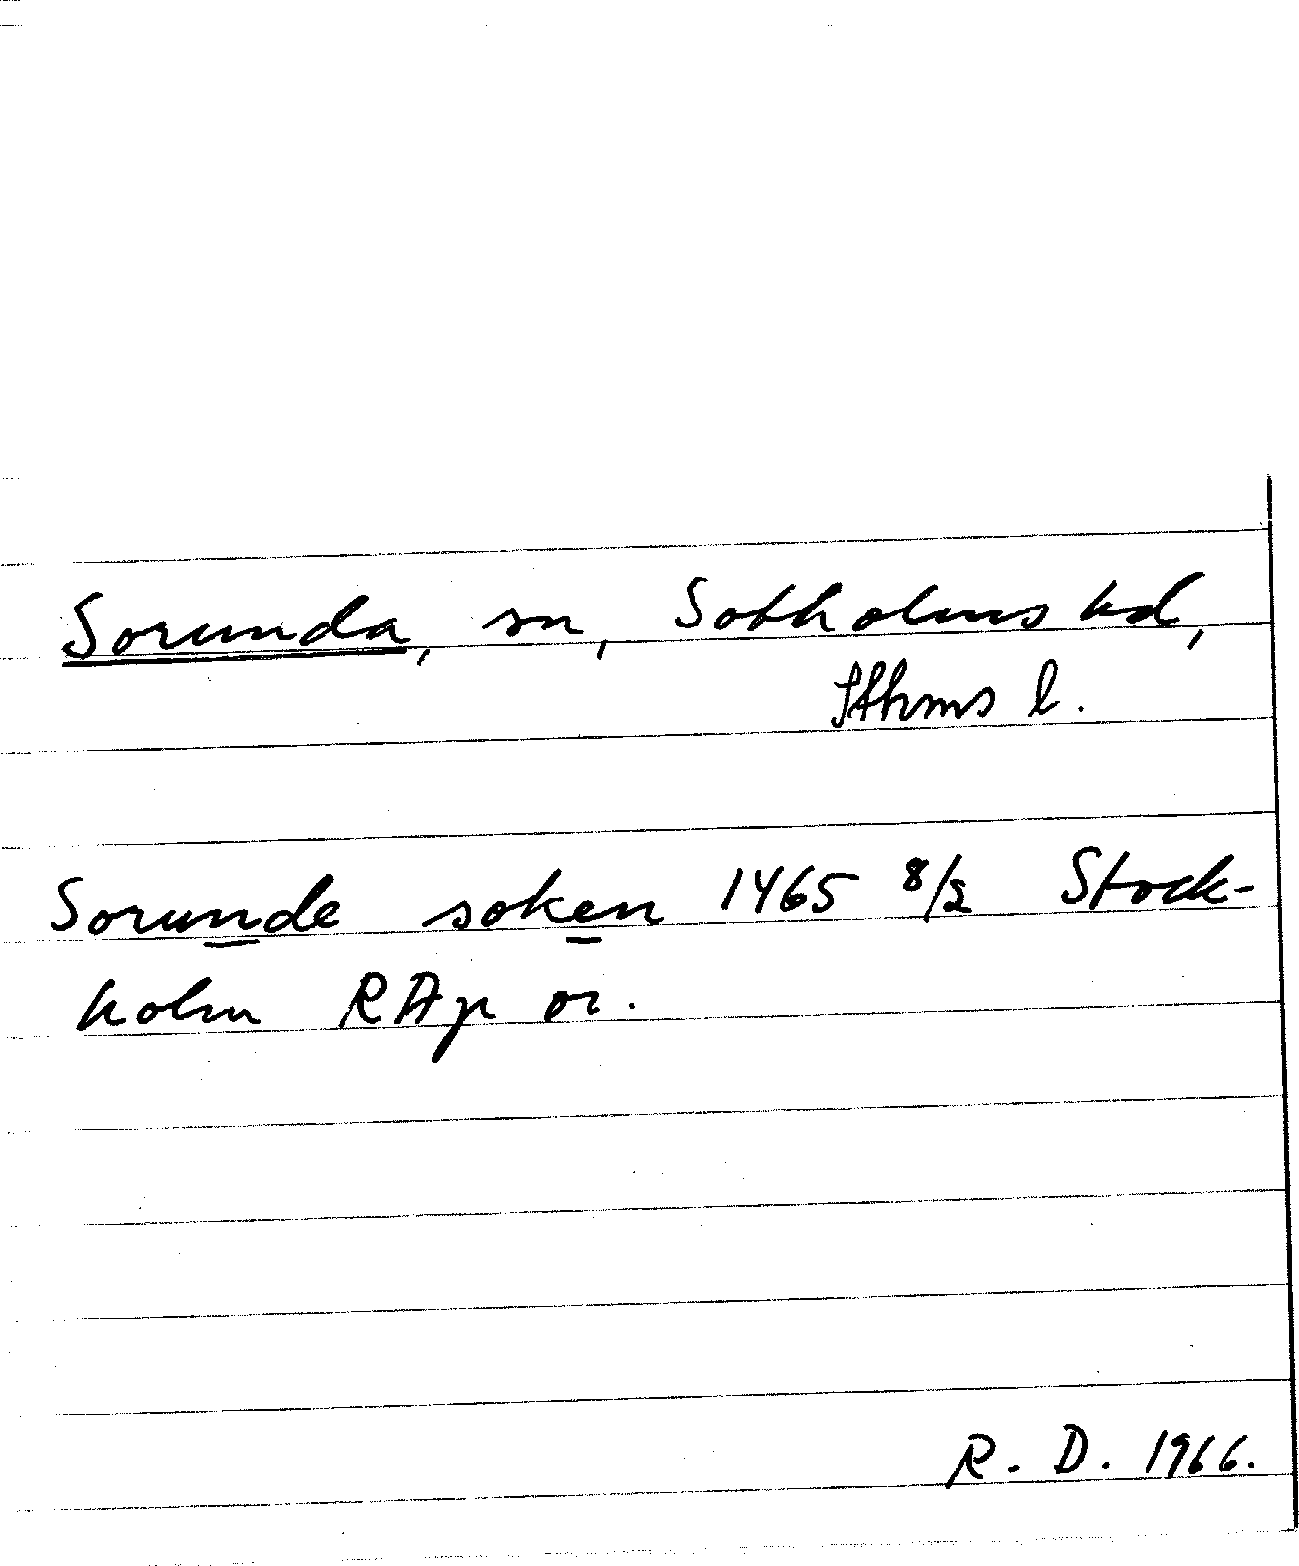 Sorunda, sn, Sotholms hd,
Sthms l.
Sorunde soken 1465 8/2 Stock-
holm RAp or.
R. D. 1966.